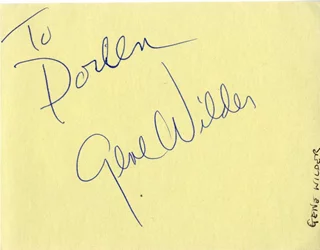 To
Doreen
Gene Wilder
GENE WILDER